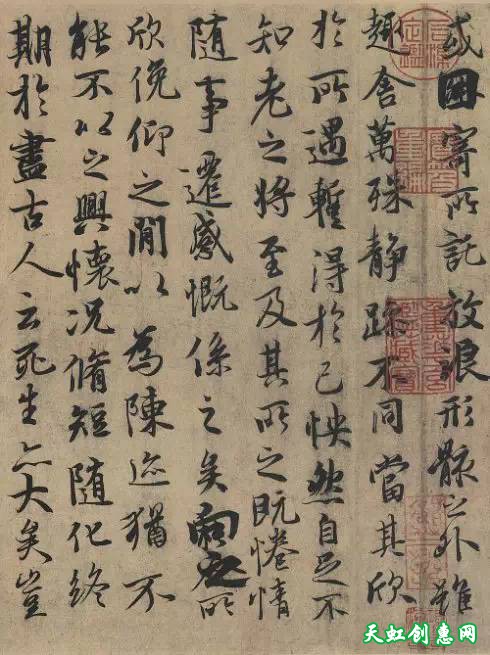 或因寄所託放浪形骸之外雖
趣舍萬殊静躁不同當其欣
於所遇蹔得於己怏然自足不
知老之將至及其所之既惓情
随事遷感慨係之矣向之所
欣俛仰之閒以為陳迹猶不
能不以之興懷況脩短随化終
期於盡古人云死生亦大矣豈
天虹创惠网